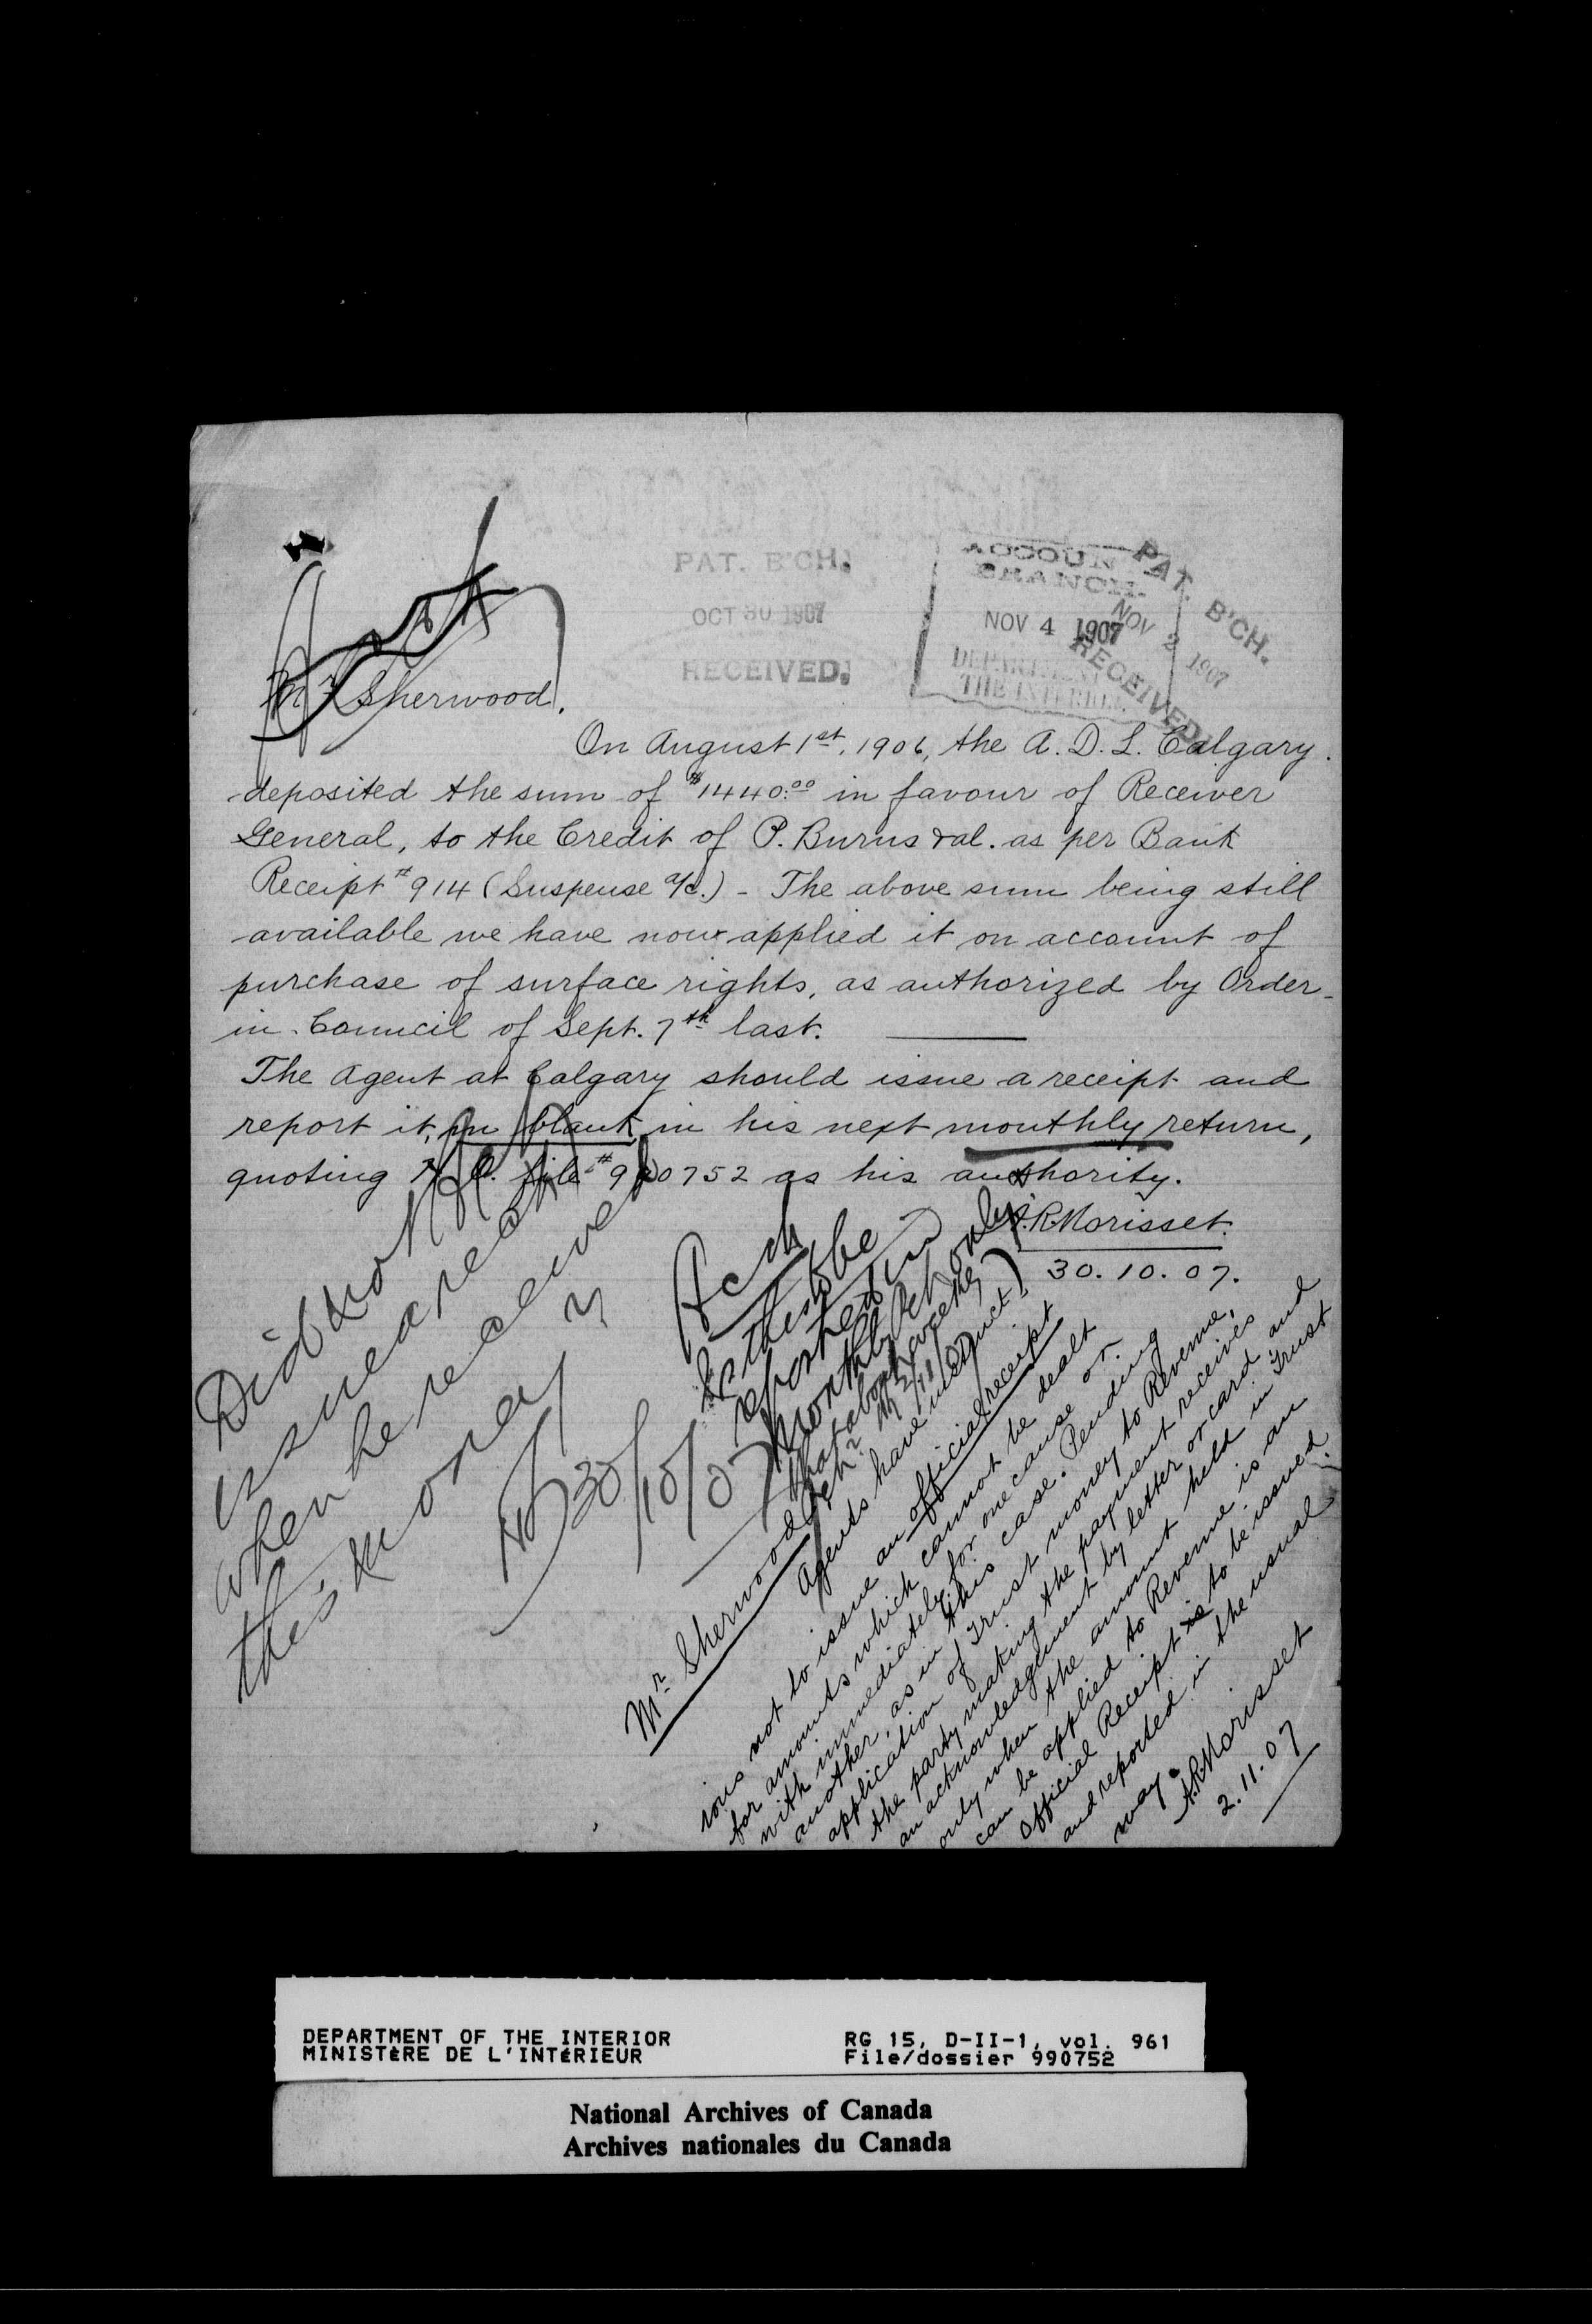 PAT. B'CH.
OCT 30 1907
RECEIVED.
ACCOUN
BRANCH.
NOV 4 1907
DEPARTMENT
THE INTERIOR.
PAT. B'CH.
NOV 2 1907
RECEIVED.
Mr Sherwood.
On August 1st, 1906, the A. D. L. Calgary.
deposited the sum of $1440.00 in favour of Receiver
General, to the Credit of P. Burns & al. as per Bank
Receipt #914 (Suspense a/c.) - The above sum being still
available we have now applied it on account of
purchase of surface rights, as authorized by Order-
in-Council of Sept. 7th last.
The Agent at Calgary should issue a receipt and
report it, in blank, in his next monthly return,
quoting H.O. file #990752 as his authority.
A.R. Morisset.
30.10.07.
Did not
issue a receipt
when he received
this money
30/10/07
Is this to be
reported in
monthly only
2/11/07
Mr Sherwood
Agents have instruct-
ions not to issue an official receipt
for amounts which cannot be dealt
with immediately for one cause or
another, as in this case. Pending
application of Trust money to Revenue,
the party making the payment receives
an acknowledgement by letter or card and
only when the amount held in Trust
can be applied to Revenue is an
Official Receipt to be issued
and reported in the usual
way.
A.R. Morisset
2.11.07
DEPARTMENT OF THE INTERIOR
MINISTÈRE DE L'INTÉRIEUR
RG 15, D-II-1, vol. 961
File/dossier 990752
National Archives of Canada
Archives nationales du Canada